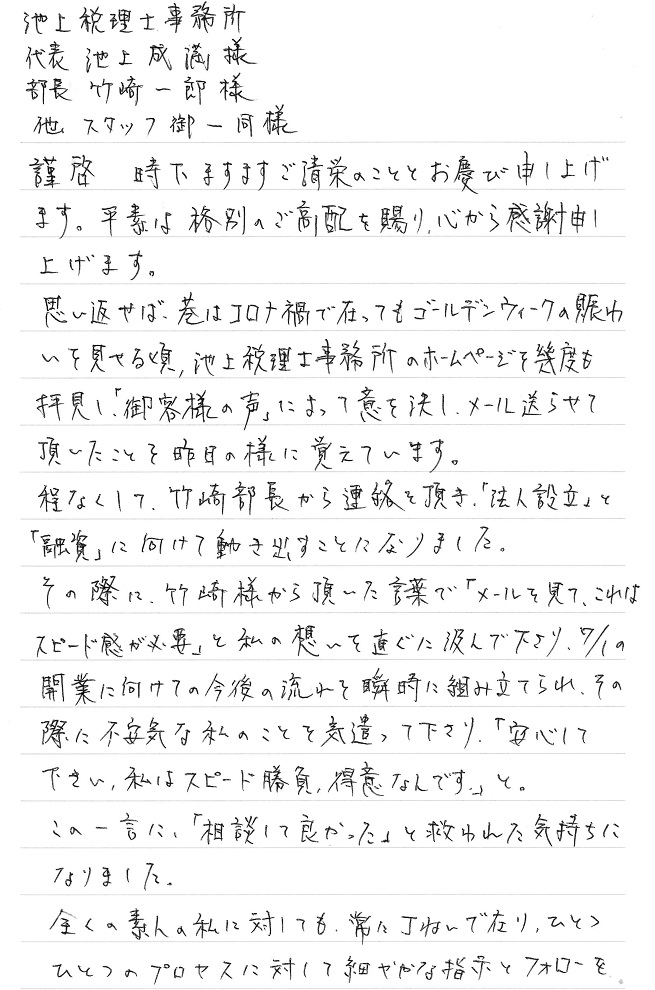 池上税理士事務所
代表 池上成満様
部長 竹崎一郎様
他 スタッフ御一同様
謹啓 時下ますますご清栄のこととお慶び申し上げ
ます。平素は格別のご高配を賜り、心から感謝申し
上げます。
思い返せば、巷はコロナ禍で在ってもゴールデンウィークの賑わ
いを見せる頃、池上税理士事務所のホームページを幾度も
拝見し、「御客様の声」によって意を決し、メール送らせて
頂いたことを昨日の様に覚えています。
程なくして、竹崎部長から連絡を頂き、「法人設立」と
「融資」に向けて動き出すことになりました。
その際に、竹崎様から頂いた言葉で「メールを見て、これは
スピード感が必要」と私の想いを直ぐに汲んで下さり、7/1の
開業に向けての今後の流れを瞬時に組み立てられ、その
際に不安気な私のことを気遣って下さり、「安心して
下さい、私はスピード勝負、得意なんです。」と。
この一言に、「相談して良かった」と救われた気持ちに
なりました。
全くの素人の私に対しても、常に丁ねいで在り、ひとつ
ひとつのプロセスに対して細やかな指示とフォローを